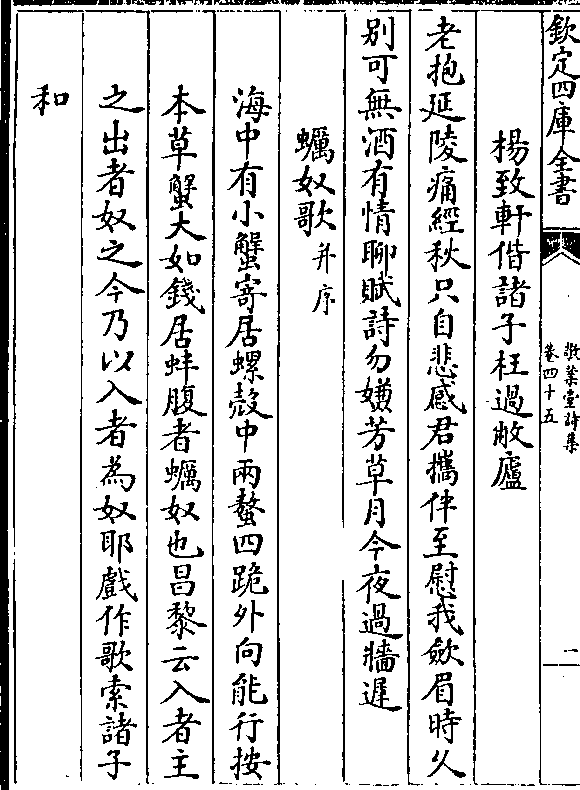 欽定四庫全書
敬業堂詩集
卷四十五
二
楊致軒偕諸子枉過敝廬
老抱延陵痛經秋只自悲感君攜伴至慰我歛眉時久
別可無酒有情聊賦詩勿嫌芳草月今夜過牆遲
蠣奴歌并序
海中有小蟹寄居螺殻中兩螯四跪外向能行按
本草蟹大如錢居蚌腹者蠣奴也昌黎云入者主
之出者奴之今乃以入者為奴耶戲作歌索諸子
和